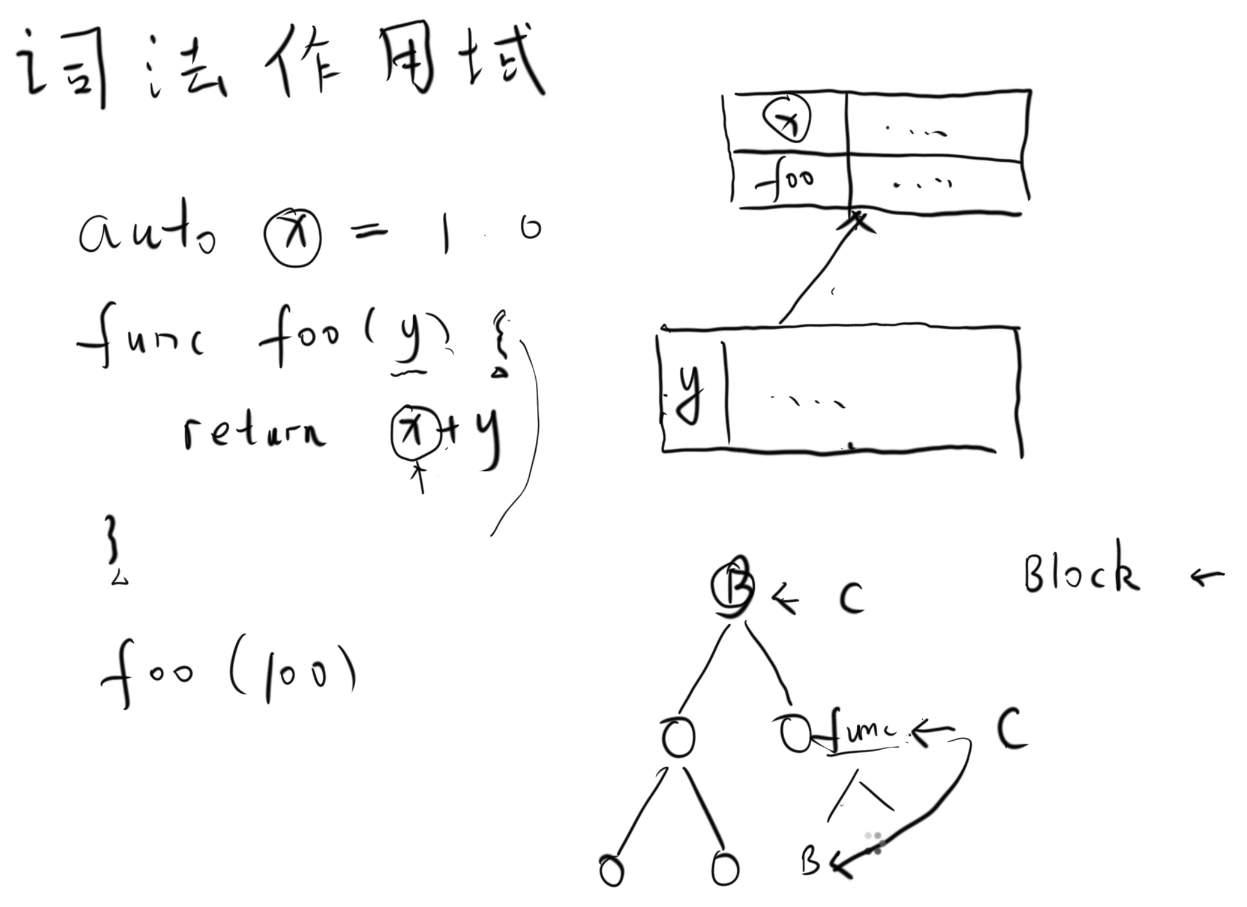 词法作用域
auto x = 1.0
func foo(y) {
return x+y
}
foo(100)
x ....
foo ....
y ....
B ← C
Block ←
func ← C
B